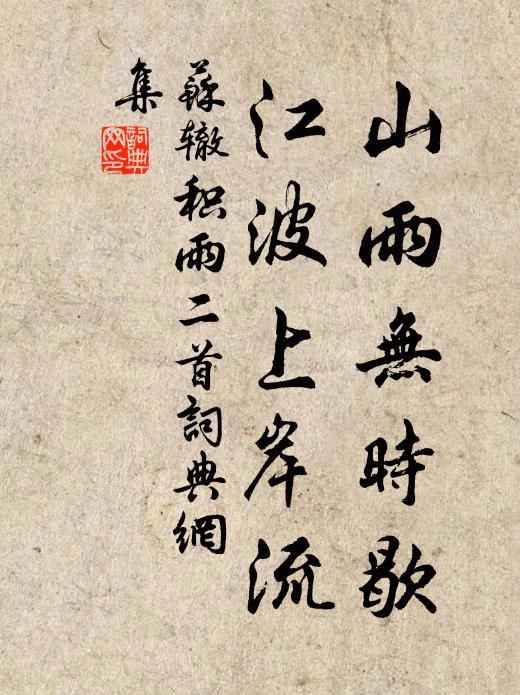 山雨無時歇
江波上岸流
蘇辙积雨二首詞典網
集
詞典
网印